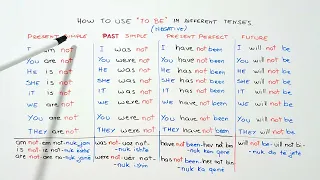 HOW TO USE "TO BE" IN DIFFERENT TENSES
(NEGATIVE)
PRESENT SIMPLE PAST SIMPLE PRESENT PERFECT FUTURE
I am not I was not I have not been I will not be
YOU are not YOU were not YOU have not been YOU will not be
HE is not HE was not HE has not been HE will not be
SHE is not SHE was not SHE has not been SHE will not be
IT is not IT was not IT has not been IT will not be
WE are not WE were not WE have not been WE will not be
YOU are not YOU were not YOU have not been YOU will not be
THEY are not THEY were not THEY have not been THEY will not be
am not- -nuk jam was not- have not been- will not be-
is not- -nuk është -nuk ishte -nuk kan qene -nuk do te jete
are not- -nuk jane were not- has not been-
-nuk ishin -nuk ka qene